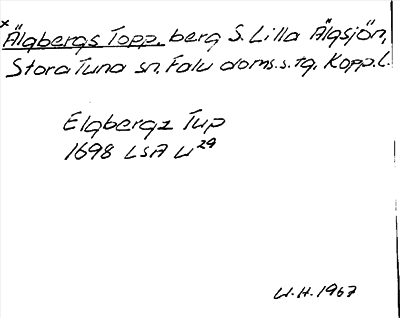 × Älgbergs Topp. berg S. Lilla Älgsjön,
Stora Tuna sn. Falu doms.s. tg. Kopp.l.
Elgbergz Tup
1698 LSA W 29
W.H. 1967